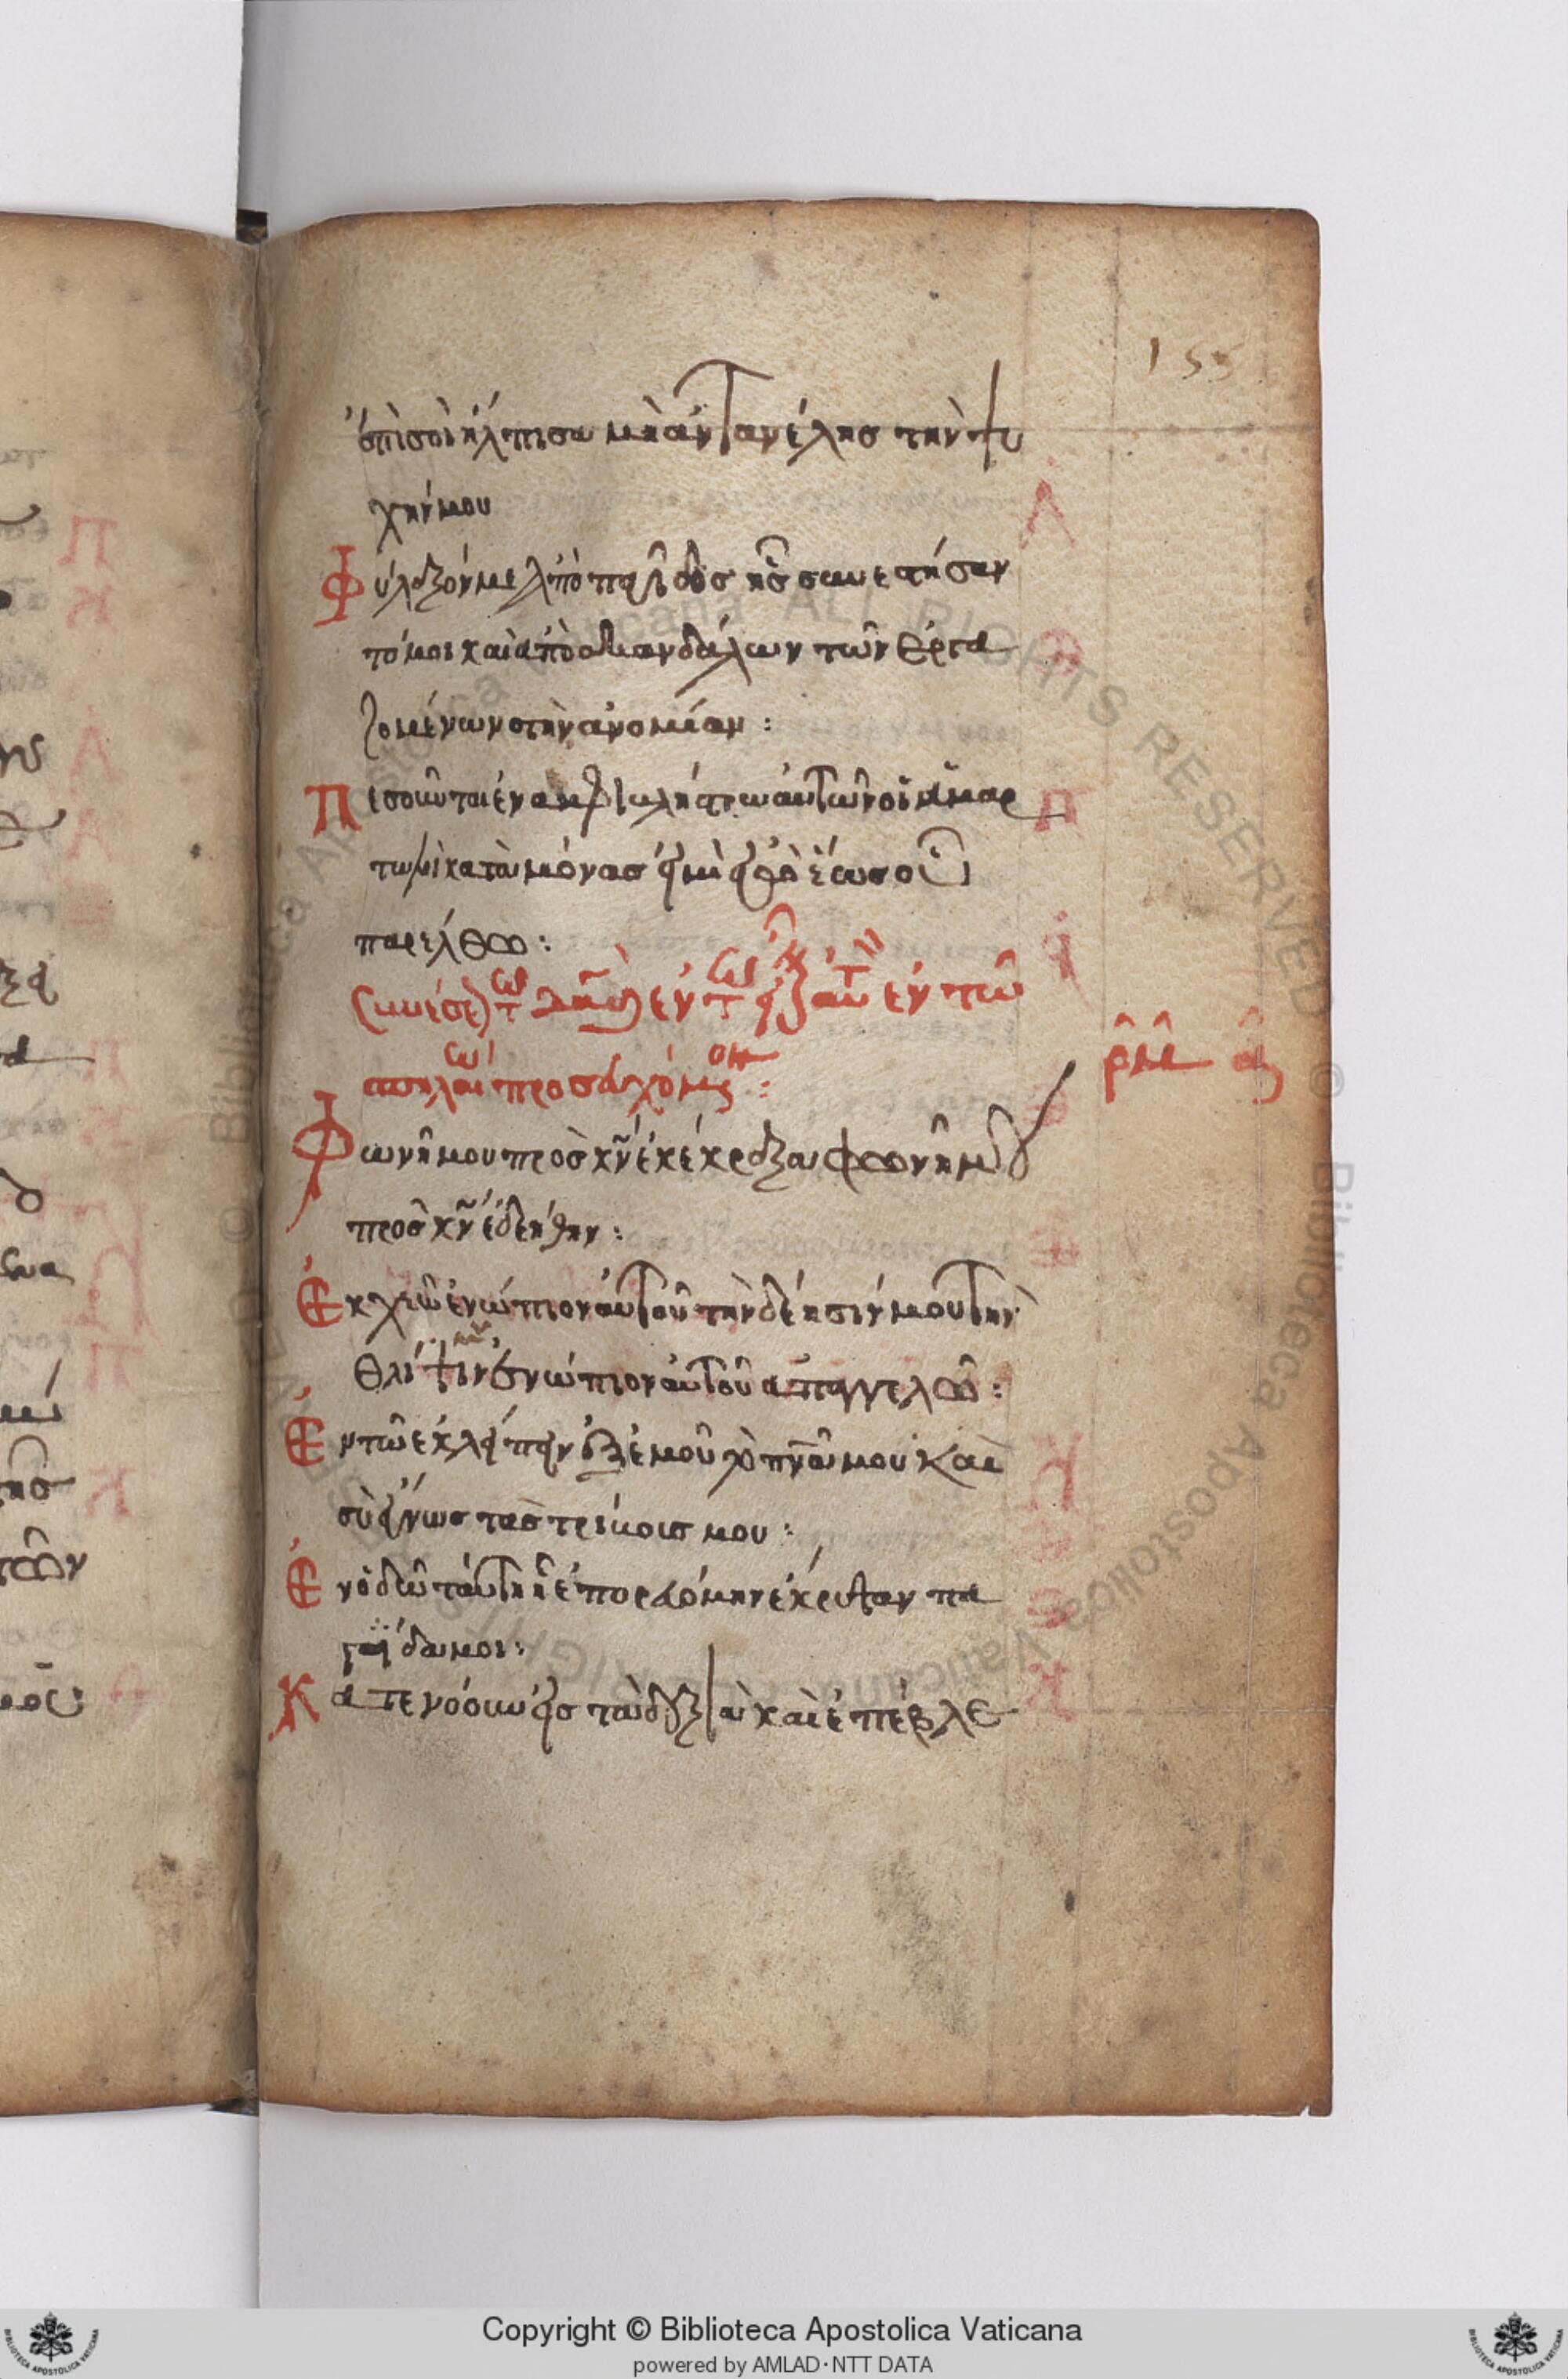 155
ἐπὶ σοὶ ἤλπισα μὴ ἀντανέλης τὴν ψυ
χήν μου
Φύλαξόν με ἀπὸ παγίδος ἧς συνεστήσαν
τό μοι καὶ ἀπὸ σκανδάλων τῶν ἐργα
ζομένων τὴν ἀνομίαν :
Πεσοῦνται ἐν ἀμφιβλήστρω αὐτῶν οἱ ἁμαρ
τωλοὶ κατὰ μόνας εἰμὶ ἐγὼ ἕως οὗ
παρέλθω :
συνέσε τ δαδ ἐν τ εἶναι αὐτ ἐν τῶ
σπηλαίω προσευχόμενον :
ρμα
Φωνῆ μου πρὸς κν ἐκέκραξα φωνῆ μου
πρὸς κν ἐδεήθην :
Ἐκχεῶ ἐνώπιον αὐτοῦ τὴν δέησίν μου τὴν
θλίψιν ἐνώπιον αὐτοῦ ἀπαγγελῶ :
Ἐν τῶ ἐκλείπειν ἐξ ἐμοῦ τὸ πνα μου καὶ
σὺ ἔγνως τὰς τρίβους μου :
Ἐν ὁδῶ ταύτη ἧ ἐπορευόμην ἔκρυψαν πα
γίδα μοι :
Κατενόουν εἰς τὰ δεξιὰ καὶ ἐπέβλε
Copyright © Biblioteca Apostolica Vaticana
powered by AMLAD·NTT DATA